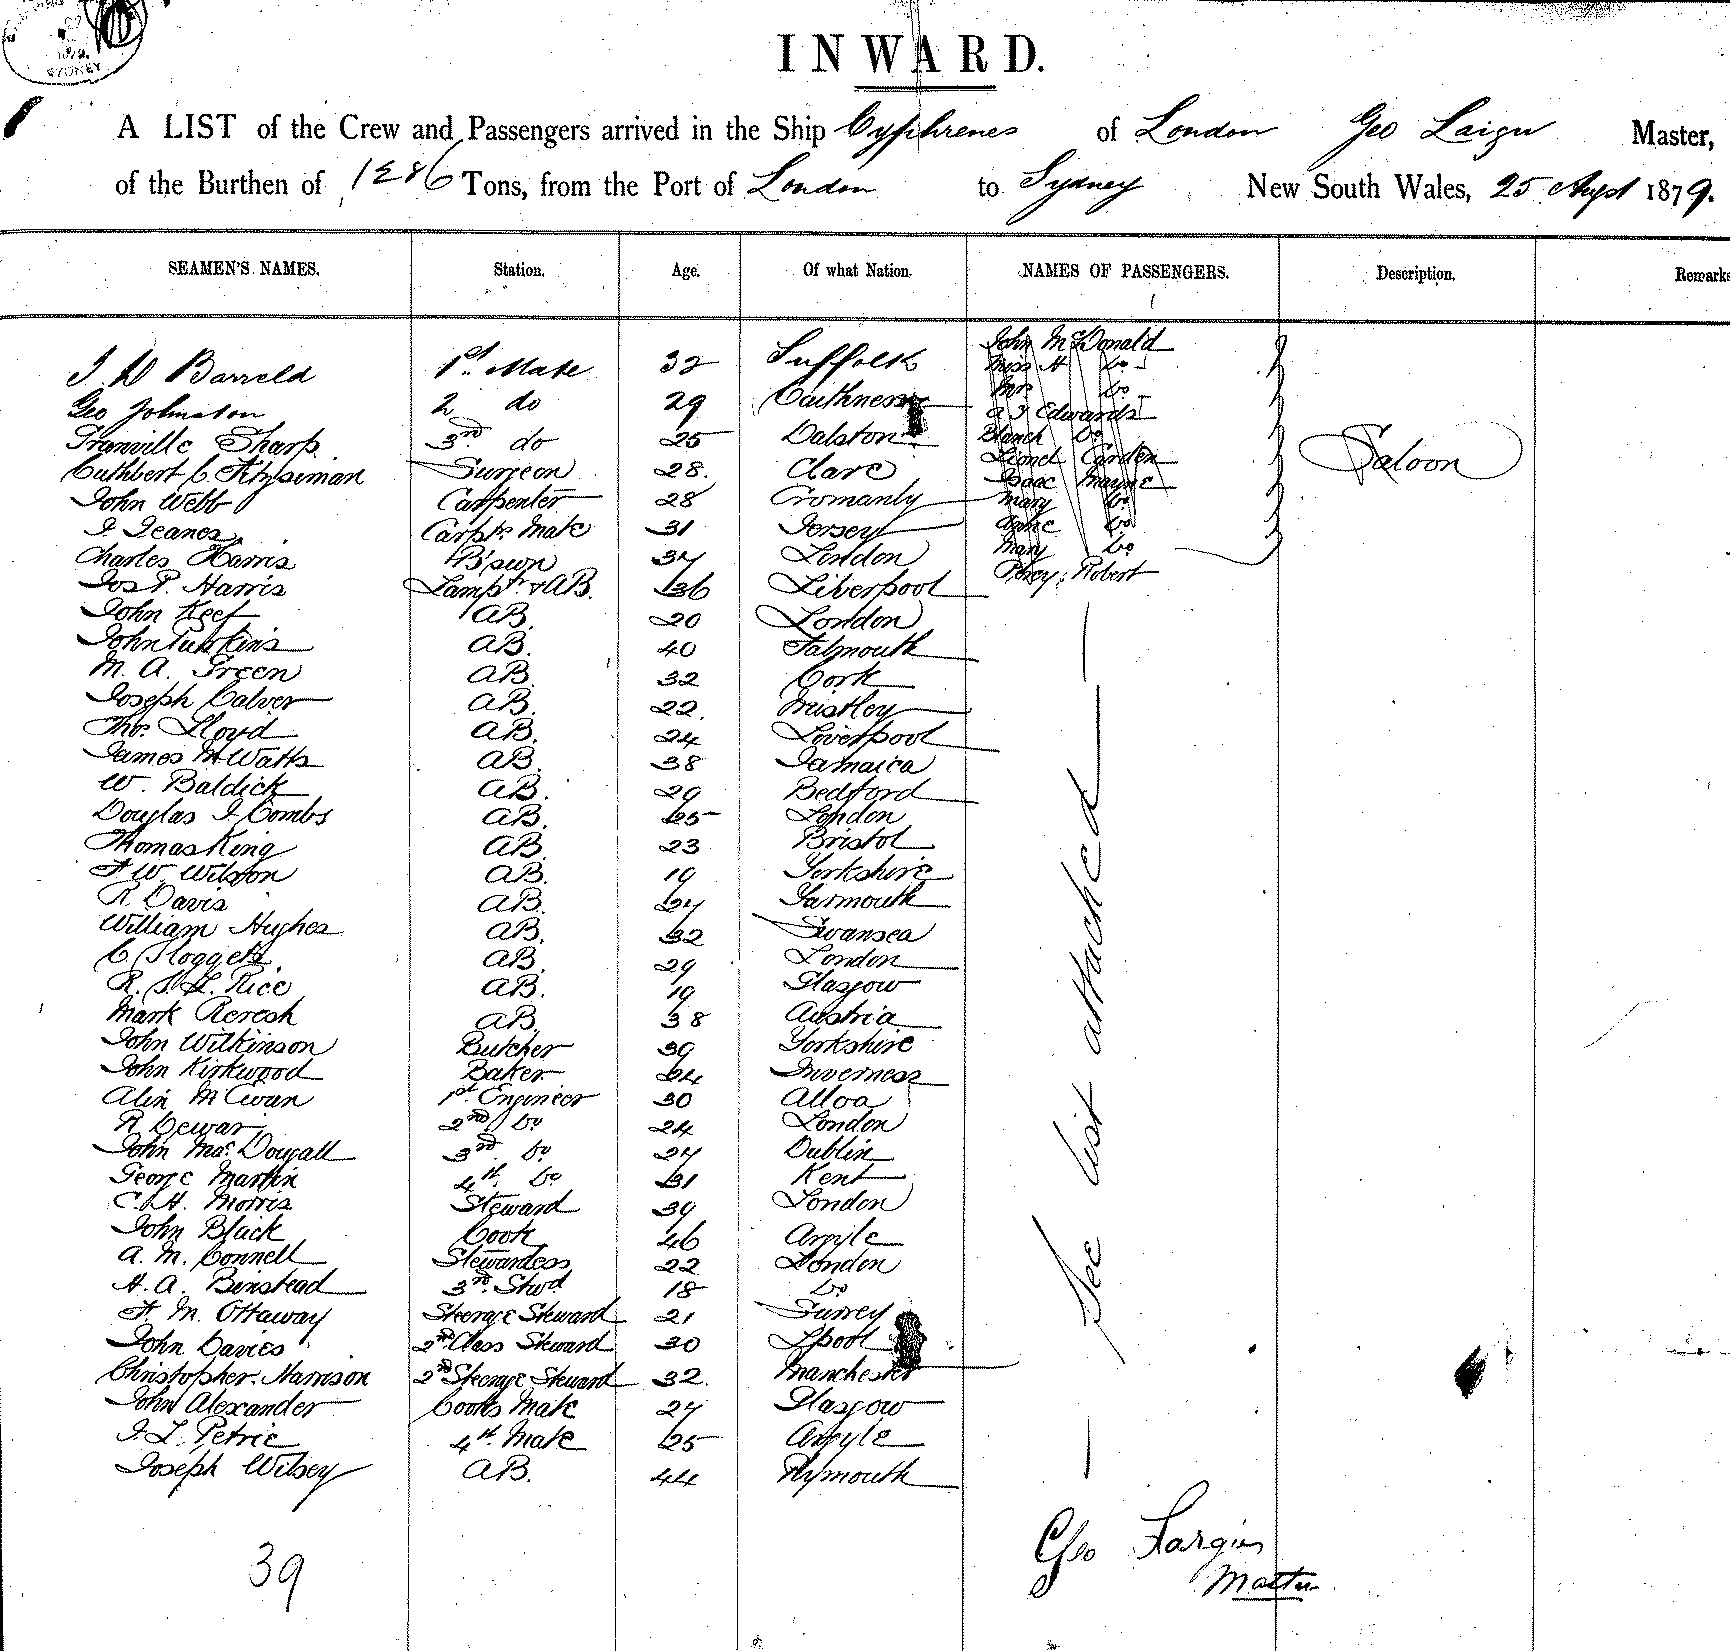 1879.
SYDNEY
INWARD.
A LIST of the Crew and Passengers arrived in the Ship Cyphrenes of London Geo Master,
of the Burthen of Tons, from the Port of London to Sydney New South Wales, 25 Augst 1879.
SEAMEN'S NAMES. Station. Age. Of what Nation. NAMES OF PASSENGERS. Description. Remarks
John McDonald
J W Barreld 1st. Mate 32 Suffolk Miss H Do
Mrs Do
Geo Johnston 2 do 29 Caithness A J Edwards
Granville Sharp 3rd. do 25 Dalston Blanch Do
Cuthbert C. Surgeon 28. Clare Lionel Carden Saloon
John Webb Carpenter 28 Cromanty Isaac Mayne
Mary Do
J. Jeanes Carptrs Mate 31 Jersey Anne Do
Charles Harris B'swn 34 London Mary Do
Jos P. Harris Lampt & AB. 36 Liverpool Percy Robert
John Keef AB. 20 London
John AB. 40 Falmouth
M. A. Green AB. 32 Cork
Joseph Calver AB. 22. Mistley
Thos. Lloyd AB. 24 Liverpool
James M Watts AB. 38 Jamaica
W. Baldick AB. 29 Bedford
Douglas J Combs AB. 25 London
Thomas King AB. 23 Bristol
F W. Wilson AB. 19 Yorkshire
R. Davis AB. 24 Yarmouth
William Hughes AB. 32 Swansea
C Sloggett AB. 29 London
R. S. L. Rice AB. 19 Glasgow
Mark AB. 38 Austria
John Wilkinson Butcher 39 Yorkshire
John Kirkwood Baker 24 Inverness
Alin McEwan 1st. Engineer 30 Alloa
R Dewar 2nd Do 24 London
John Mac Dougall 3rd. Do 24 Dublin
George Martin 4th. Do 31 Kent
C. H. Morris Steward 39 London
John Black Cook 46 Argyle
A. M. Connell Stewardess 22 London
H. A. Binstead 3rd. Stwd 18 Do
F. M. Ottaway Steerage Steward 21 Surrey
John Davies 2nd Class Steward 30 Lpool
Christopher Harrison 2nd Steerage Steward 32. Manchester
John Alexander Cooks Mate 24 Glasgow
J. L. Petrie 4th. Mate 25 Argyle
Joseph Wilsey AB. 44 Plymouth
See list attached
Geo
Master
39